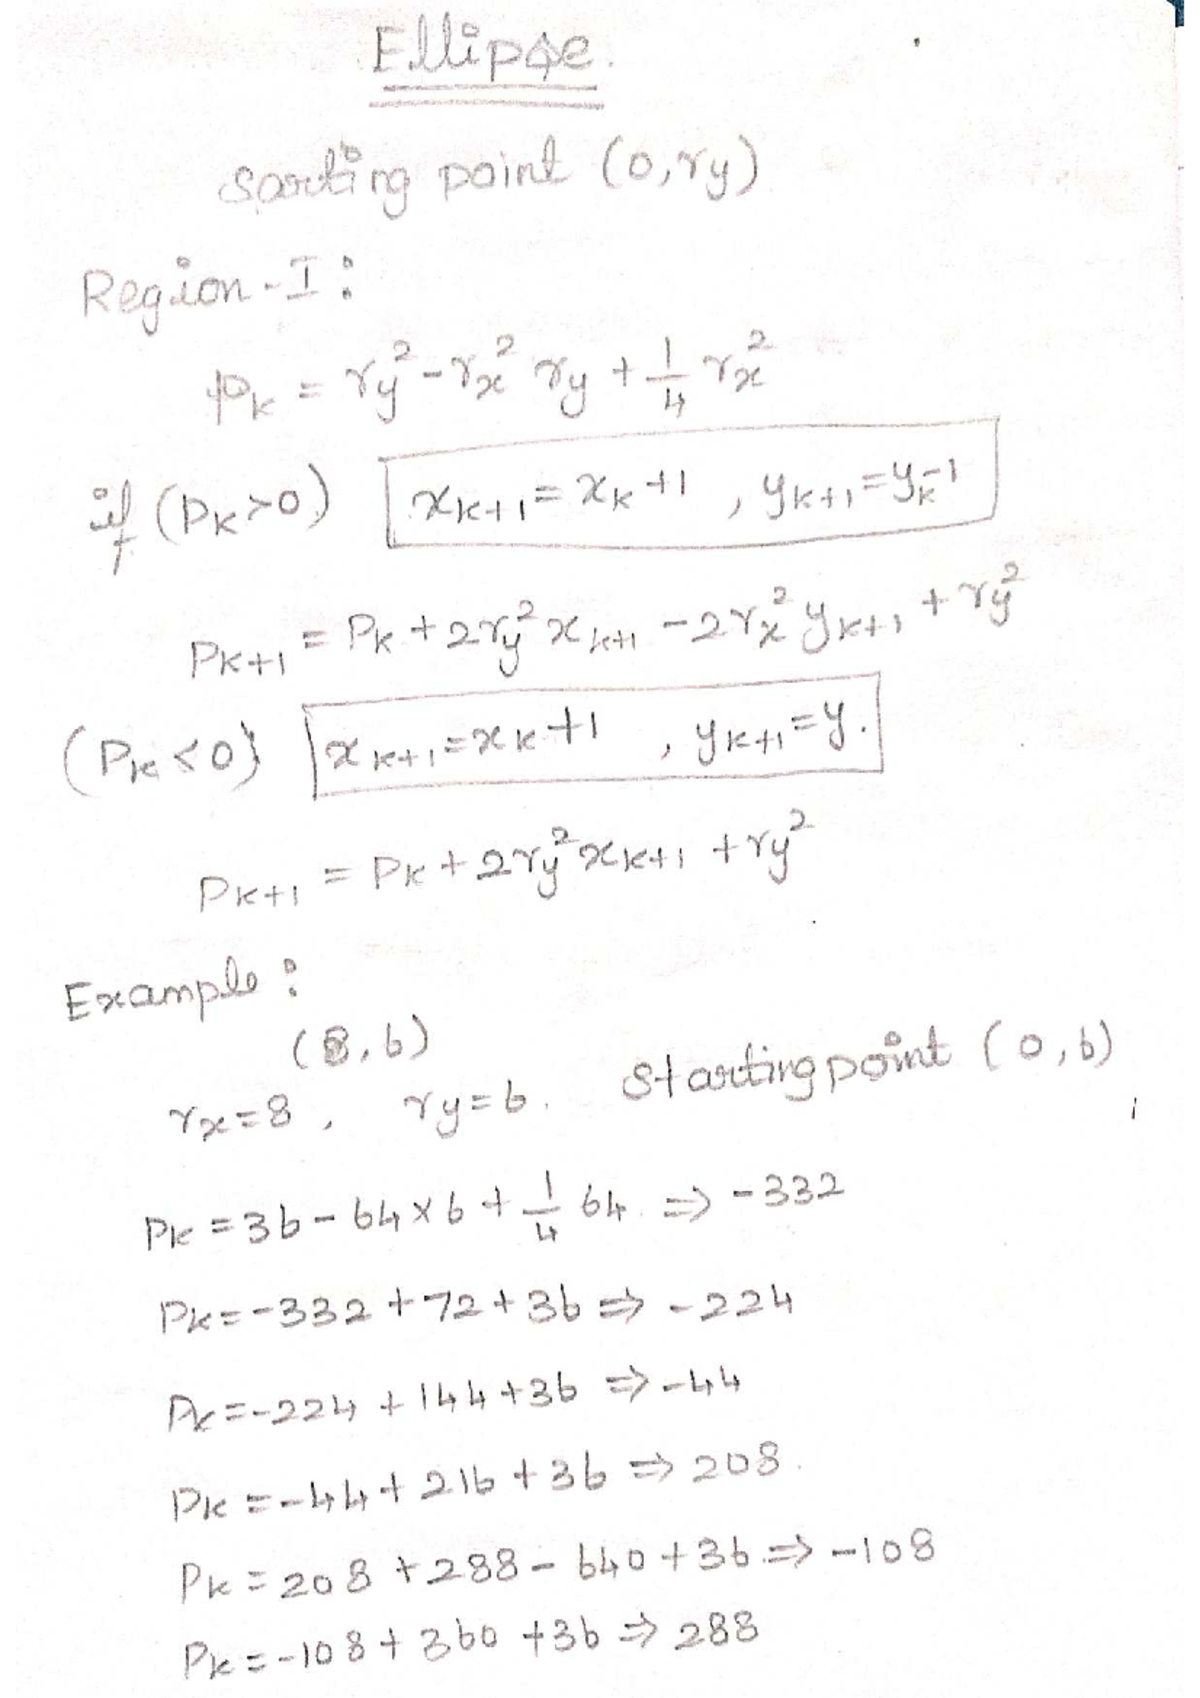 Ellipse.
Sarting point (0,ry)
Region-I:
Pk = ry² - rx² ry + 1/4 rx²
if (Pk>0) xk+1 = xk +1 , yk+1 = yk-1
Pk+1 = Pk + 2ry² xk+1 - 2rx² yk+1 + ry²
(Pk<0) xk+1 = xk +1 , yk+1 = y.
Pk+1 = Pk + 2ry² xk+1 + ry²
Example:
(8,6)
rx=8, ry=6. Starting point (0,6)
Pk = 36 - 64×6 + 1/4 64 ⇒ -332
Pk = -332 + 72 + 36 ⇒ -224
Pk = -224 + 144 + 36 ⇒ -44
Pk = -44 + 216 + 36 ⇒ 208.
Pk = 208 + 288 - 640 + 36 ⇒ -108
Pk = -108 + 360 + 36 ⇒ 288